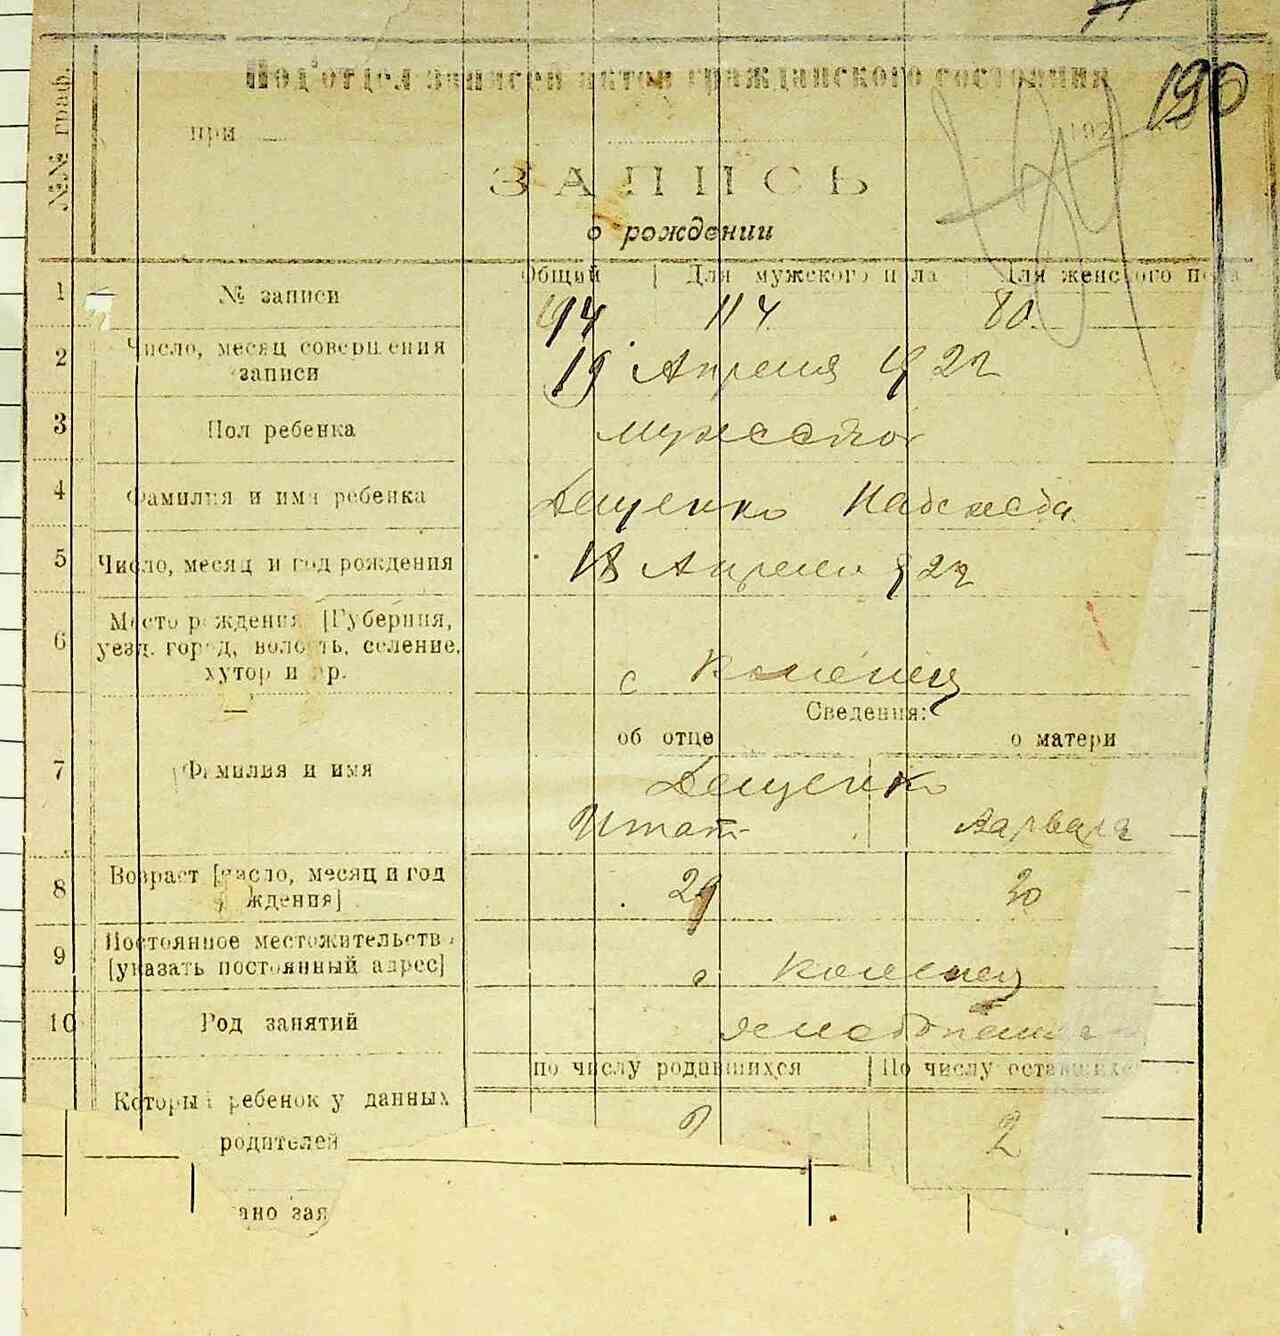 190
№№ граф.
Под'отдел записей актов гражданского состояния
при 192
ЗАПИСЬ
о рождении
Общий Для мужского пола Для женского пола
1 № записи 194 114 80
2 Число, месяц совершения
записи 19 Апреля 1922
3 Пол ребенка
4 Фамилия и имя ребенка Деценко Надежда
5 Число, месяц и год рождения 18 Апреля 922
6 Место рождения [Губерния,
уезд. город, волость, селение,
хутор и пр. с
Сведения:
об отце о матери
7 Фамилия и имя Деценко
Игнат Варвара
8 Возраст [число, месяц и год
рождения] 29 30
9 Постоянное местожительство
[указать постоянный адрес] с
10 Род занятий
по числу родившихся По числу оставшихся
Который ребенок у данных 2
родителей
ано зая